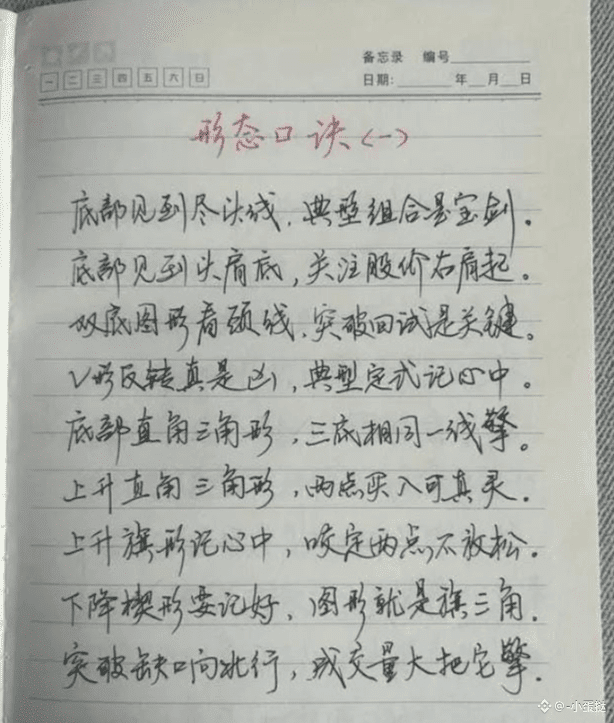 备忘录 编号
一 二 三 四 五 六 日
日期: 年 月 日
形态口诀(一)
底部见到尽头线,典型组合是宝剑。
底部见到头肩底,关注股价右肩起。
双底图形看颈线,突破回试是关键。
V形反转真是凶,典型定式记心中。
底部直角三角形,三底相同一线擎。
上升直角三角形,两点买入可真灵。
上升旗形记心中,咬定两点不放松。
下降楔形要记好,图形就是旗三角。
突破缺口向北行,成交量大把它擎。
@-小蛋挞